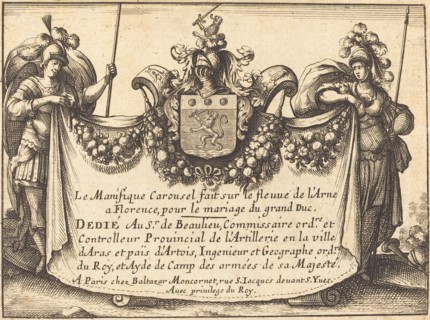 Le Manifique Carousel fait sur le fleuve de l'Arne
a Florence, pour le mariage du grand Duc.
DEDIE Au S.r de Beaulieu, Commissaire ord.re et
Controlleur Provincial de l'Artillerie en la ville
d'Aras et païs d'Artois, Ingenieur et Geographe ord.re
du Roy, et Ayde de Camp des armées de sa Majesté.
A Paris chez Baltazar Moncornet, rue S. Iacques devant S. Yves.
Avec privilege du Roy.